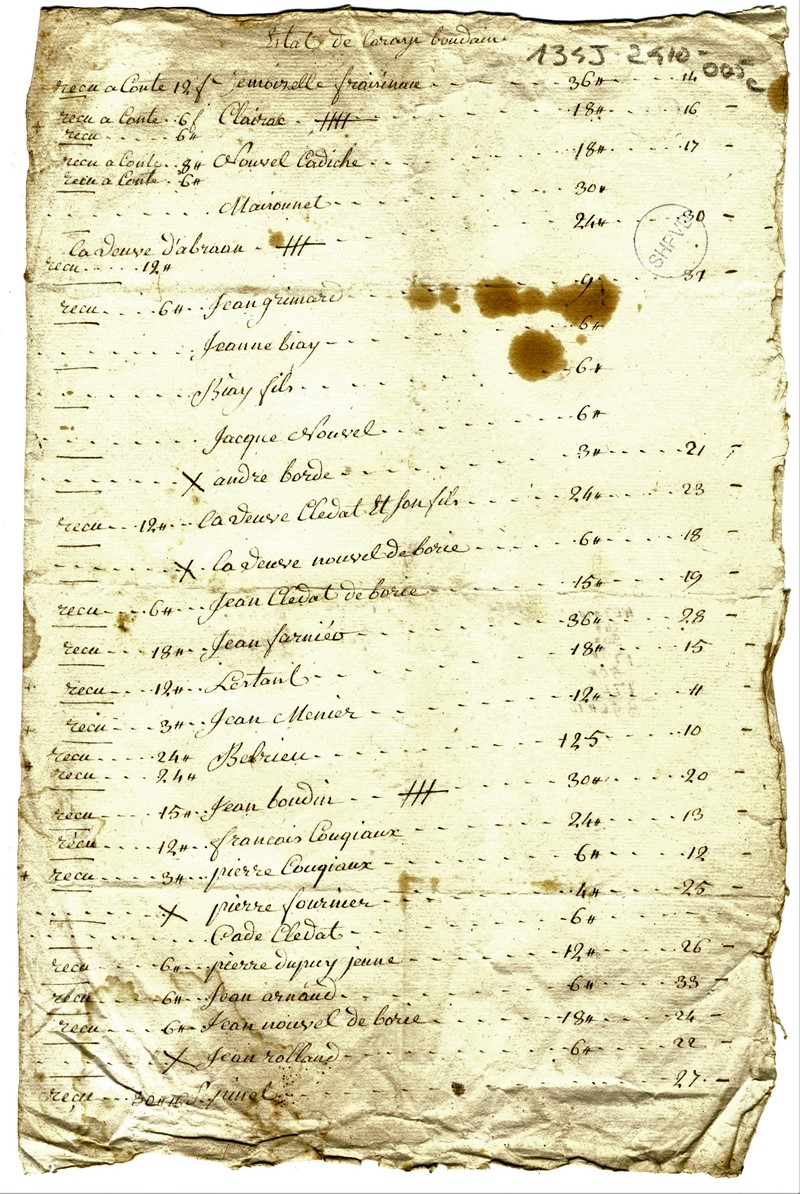 Etat de laraye boudain
134J-2410-005c
recu a Conte 12 f Jemoiselle fraisinue 36 ₶ 14
recu a Conte 6 f Clairac 18 ₶ 16
recu 6 ₶
recu a Conte 8 ₶ Nouvel Cadiche 18 ₶ 17
recu a Conte 6 ₶
Maironnet 30 ₶
la veuve d'abraan 24 ₶ 30
SHPVG
recu 12 ₶
recu 6 ₶ Jean grimard 9 31
Jeanne biay 6 ₶
Biay fils 6 ₶
Jacque Nouvel 6 ₶
X andre borde 3 ₶ 21
recu 12 ₶ la veuve Cledat Et son fils 24 ₶ 23
X la veuve nouvel de borie 6 ₶ 18
recu 6 ₶ Jean Cledat de borie 15 ₶ 19
recu 18 ₶ Jean farniéo 36 ₶ 28
recu 12 ₶ Lestant 18 ₶ 15
recu 3 ₶ Jean Menier 12 ₶ 11
recu 24 ₶ Bebrieu 125 10
recu 24 ₶
recu 15 ₶ Jean boudin 30 ₶ 20
recu 12 ₶ francois Cougiaux 24 ₶ 13
recu 3 ₶ pierre Cougiaux 6 ₶ 12
X pierre fournier 4 ₶ 25
Cade Cledat 6 ₶
recu 6 ₶ pierre dupuy jenne 12 ₶ 26
recu 6 ₶ Jean arnaud 6 ₶ 33
recu 6 ₶ Jean nouvel de borie 18 ₶ 24
X Jean rolland 6 ₶ 22
recu 30 ₶ 27